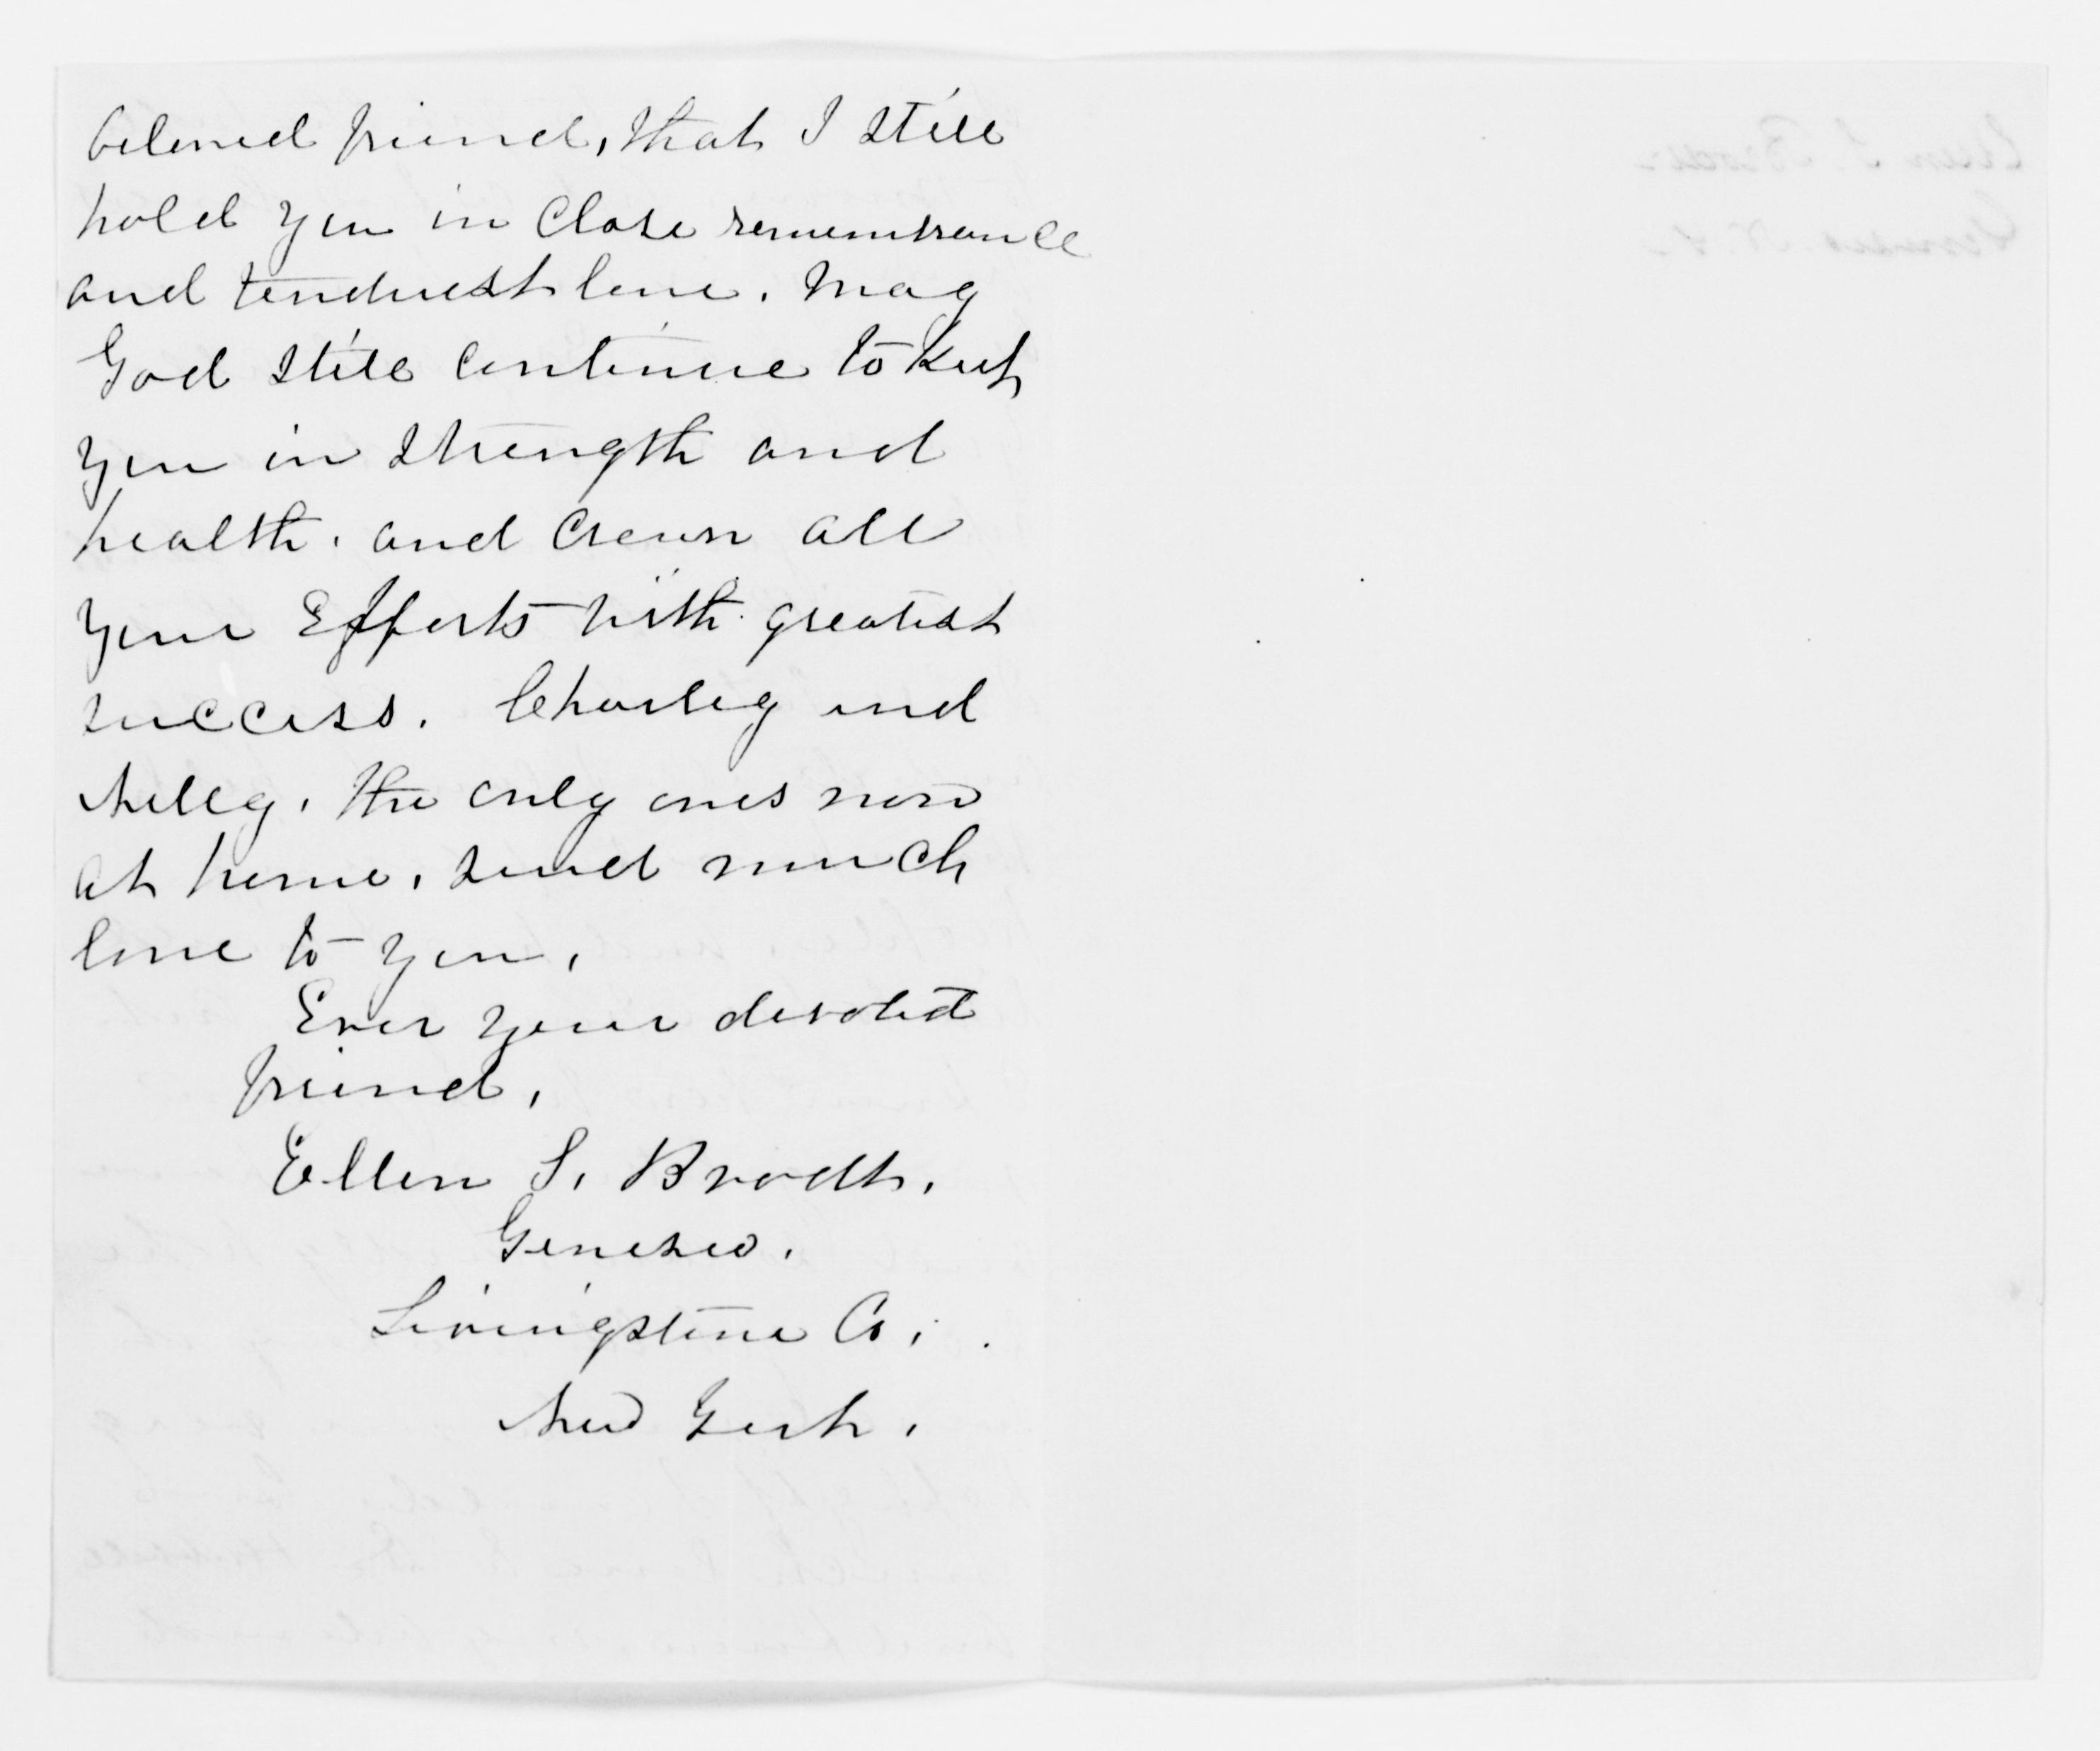 beloved friend, that I still
hold you in close remembrance
and tenderest love. May
God still continue to keep
you in strength and
health, and crown all
your Efforts with greatest
success. Charley and
Nelly, the only ones now
at home, send much
love to you,
Ever your devoted
friend,
Ellen S. Brodt,
Geneseo,
Livingstone Co,
New York,